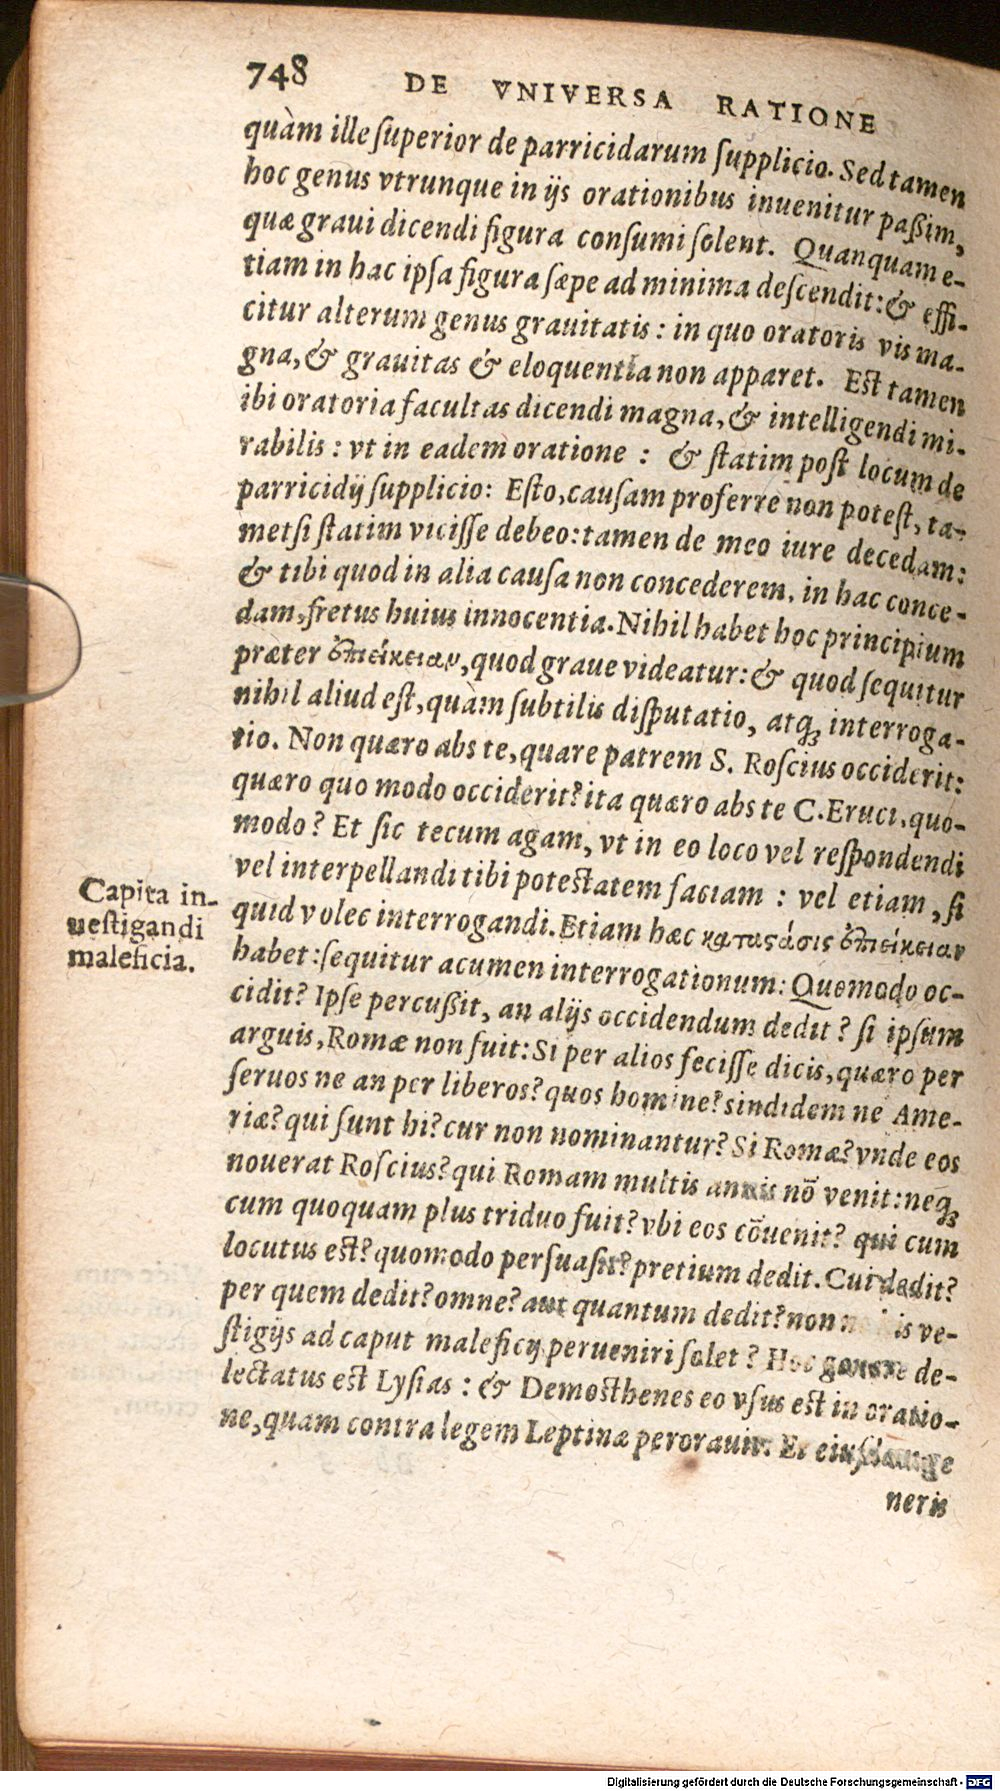 748 DE VNIVERSA RATIONE
quàm ille ſuperior de parricidarum ſupplicio. Sed tamen
hoc genus vtrunque in ijs orationibus inuenitur paßim,
quæ graui dicendi figura conſumi ſolent. Quanquam e-
tiam in hac ipſa figura ſæpe ad minima deſcendit: & effi-
citur alterum genus grauitatis: in quo oratoris vis ma-
gna, & grauitas & eloquentia non apparet. Est tamen
ibi oratoria facultas dicendi magna, & intelligendi mi-
rabilis: vt in eadem oratione: & ſtatim poſt locum de
parricidij ſupplicio: Eſto, cauſam proferre non poteſt, ta-
metſi ſtatim viciſſe debeo: tamen de meo iure decedam:
& tibi quod in alia cauſa non concederem, in hac conce-
dam, fretus huius innocentia. Nihil habet hoc principium
præter ἐπιείκειαν, quod graue videatur: & quod ſequitur
nihil aliud eſt, quàm ſubtilis diſputatio, atq; interroga-
tio. Non quæro abs te, quare patrem S. Roſcius occiderit:
quæro quo modo occiderit? ita quæro abs te C. Eruci, quo-
modo? Et ſic tecum agam, vt in eo loco vel reſpondendi
vel interpellandi tibi potestatem faciam: vel etiam, ſi
quid voles interrogandi. Etiam hæc κατασάσις ἐπιείκειαν
habet: ſequitur acumen interrogationum: Quomodo oc-
cidit? Ipſe percußit, an alijs occidendum dedit? ſi ipſum
arguis, Romæ non fuit: Si per alios feciſſe dicis, quæro per
ſeruos ne an per liberos? quos homine? sindidem ne Ame-
riæ? qui ſunt hi? cur non nominantur? Si Romæ? vnde eos
nouerat Roſcius? qui Romam multis annis nõ venit: neq;
cum quoquam plus triduo fuit? vbi eos cõuenit? qui cum
locutus est? quomodo perſuaſit? pretium dedit. Cui dedit?
per quem dedit? omne? aut quantum dedit? non is ve-
ſtigijs ad caput maleficij perueniri ſolet? Hoc genere de-
lectatus est Lyſias: & Demosthenes eo vſus est in oratio-
ne, quam contra legem Leptinæ perorauit. Et eiuſdam ge
neris
Capita in-
ueſtigandi
maleficia.
Digitalisierung gefördert durch die Deutsche Forschungsgemeinschaft - DFG